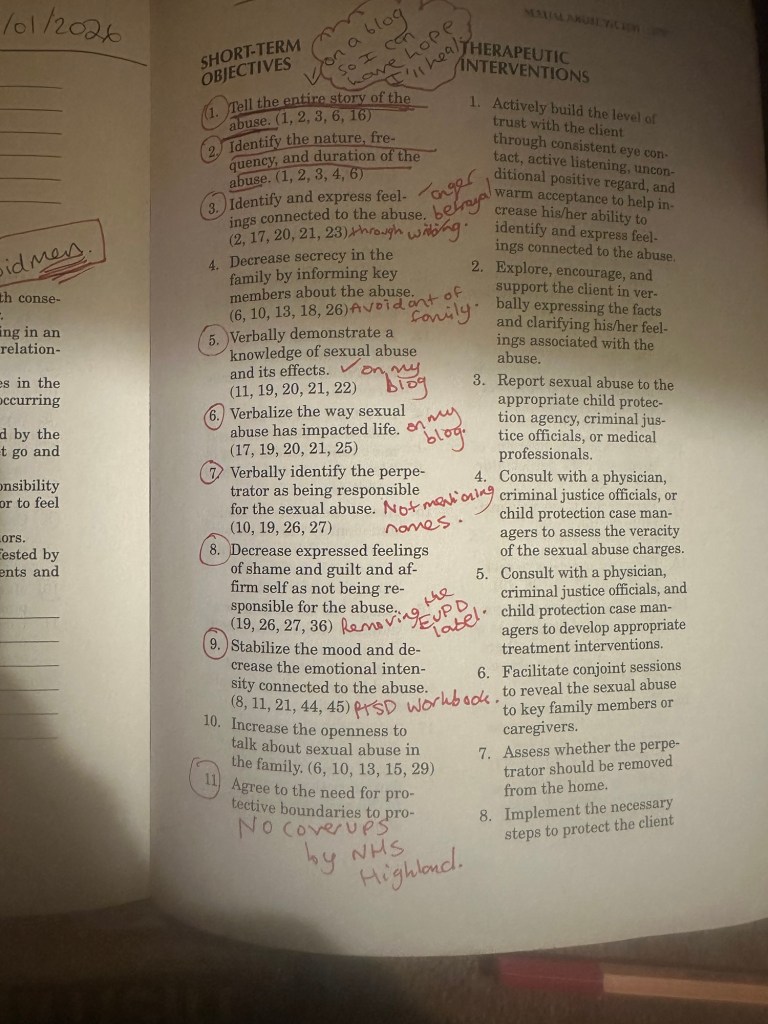 /01/2026
idmers.
th conse-
ing in an
relation-
es in the
occurring
d by the
t go and
onsibility
or to feel
ors.
fested by
ents and
on a blog
so I can
have hope
I'll heal
SHORT-TERM
OBJECTIVES
1. Tell the entire story of the
abuse. (1, 2, 3, 6, 16)
2. Identify the nature, fre-
quency, and duration of the
abuse. (1, 2, 3, 4, 6)
3. Identify and express feel-
ings connected to the abuse.
(2, 17, 20, 21, 23)
anger
betrayal
through writing.
4. Decrease secrecy in the
family by informing key
members about the abuse.
(6, 10, 13, 18, 26)
Avoidant of
family.
5. Verbally demonstrate a
knowledge of sexual abuse
and its effects.
(11, 19, 20, 21, 22)
✓ on my
blog
6. Verbalize the way sexual
abuse has impacted life.
(17, 19, 20, 21, 25)
on my
blog.
7. Verbally identify the perpe-
trator as being responsible
for the sexual abuse.
(10, 19, 26, 27)
Not mentioning
names.
8. Decrease expressed feelings
of shame and guilt and af-
firm self as not being re-
sponsible for the abuse.
(19, 26, 27, 36)
Removing the
EUPD
label.
9. Stabilize the mood and de-
crease the emotional inten-
sity connected to the abuse.
(8, 11, 21, 44, 45)
PTSD Workbook.
10. Increase the openness to
talk about sexual abuse in
the family. (6, 10, 13, 15, 29)
11 Agree to the need for pro-
tective boundaries to pro-
No coverups
by NHS
Highland.
THERAPEUTIC
INTERVENTIONS
1. Actively build the level of
trust with the client
through consistent eye con-
tact, active listening, uncon-
ditional positive regard, and
warm acceptance to help in-
crease his/her ability to
identify and express feel-
ings connected to the abuse.
2. Explore, encourage, and
support the client in ver-
bally expressing the facts
and clarifying his/her feel-
ings associated with the
abuse.
3. Report sexual abuse to the
appropriate child protec-
tion agency, criminal jus-
tice officials, or medical
professionals.
4. Consult with a physician,
criminal justice officials, or
child protection case man-
agers to assess the veracity
of the sexual abuse charges.
5. Consult with a physician,
criminal justice officials, and
child protection case man-
agers to develop appropriate
treatment interventions.
6. Facilitate conjoint sessions
to reveal the sexual abuse
to key family members or
caregivers.
7. Assess whether the perpe-
trator should be removed
from the home.
8. Implement the necessary
steps to protect the client